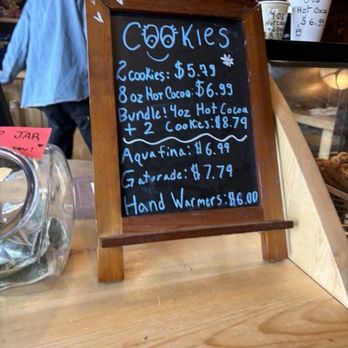 COOKIES
2 Cookies: $5.79
8 oz Hot Cocoa: $6.99
Bundle! 4oz Hot Cocoa
+ 2 Cookies: $8.79
Aquafina: $6.99
Gatorade: $7.79
Hand Warmers: $6.00
JAR
YOU!
4 oz
HOT
COCOA
HOT COCOA
$6.99